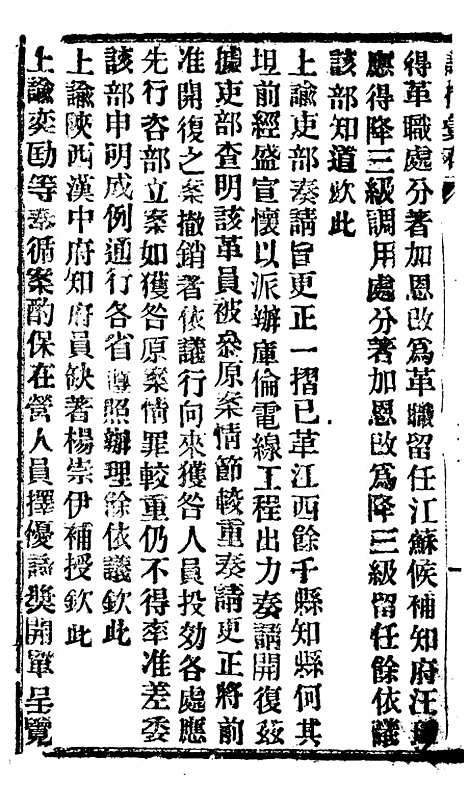 得革職處分著加恩改爲革職留任江蘇候補知府汪
應得降三級調用處分著加恩改爲降三級留任餘依議
該部知道欽此
上諭吏部奏請旨更正一摺已革江西餘干縣知縣何其
坦前經盛宣懷以派辦庫倫電線工程出力奏請開復茲
據吏部查明該革員被叅原案情節較重奏請更正將前
准開復之案撤銷著依議行向來獲咎人員投効各處應
先行咨部立案如獲咎原案情罪較重仍不得率准差委
該部申明成例通行各省遵照辦理餘依議欽此
上諭陝西漢中府知府員缺著楊崇伊補授欽此
上諭奕劻等奏循案酌保在營人員擇優請獎開單呈覽